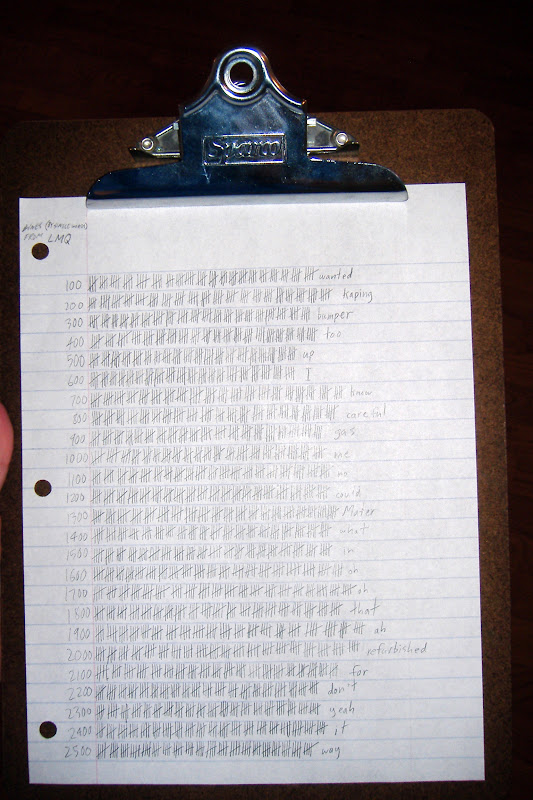 Sparco
FROM LMQ
100 wanted
200
300 bumper
400 too
500 up
600 I
700 know
800 careful
900 gas
1000 me
1100
1200 could
1300 Mater
1400 what
1500 in
1600 oh
1700 oh
1800 that
1900 ah
2000 refurbished
2100 for
2200 don't
2300 yeah
2400 it
2500 way